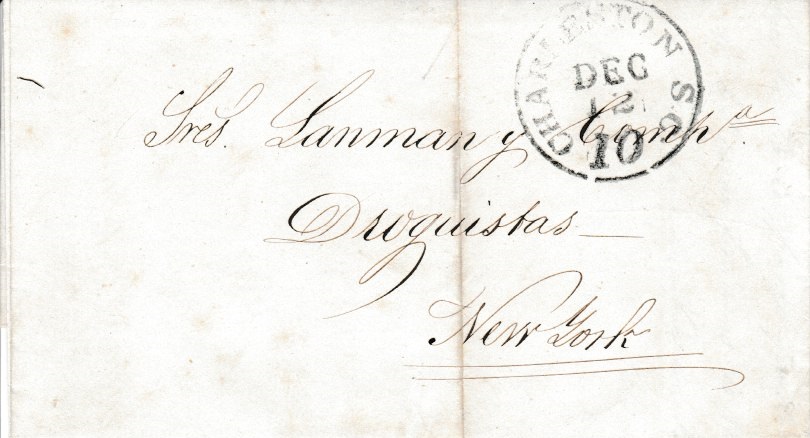 CHARLESTON S.C.
DEC
12
10
Sres. Lanman y Compa.
Droguistas
New York